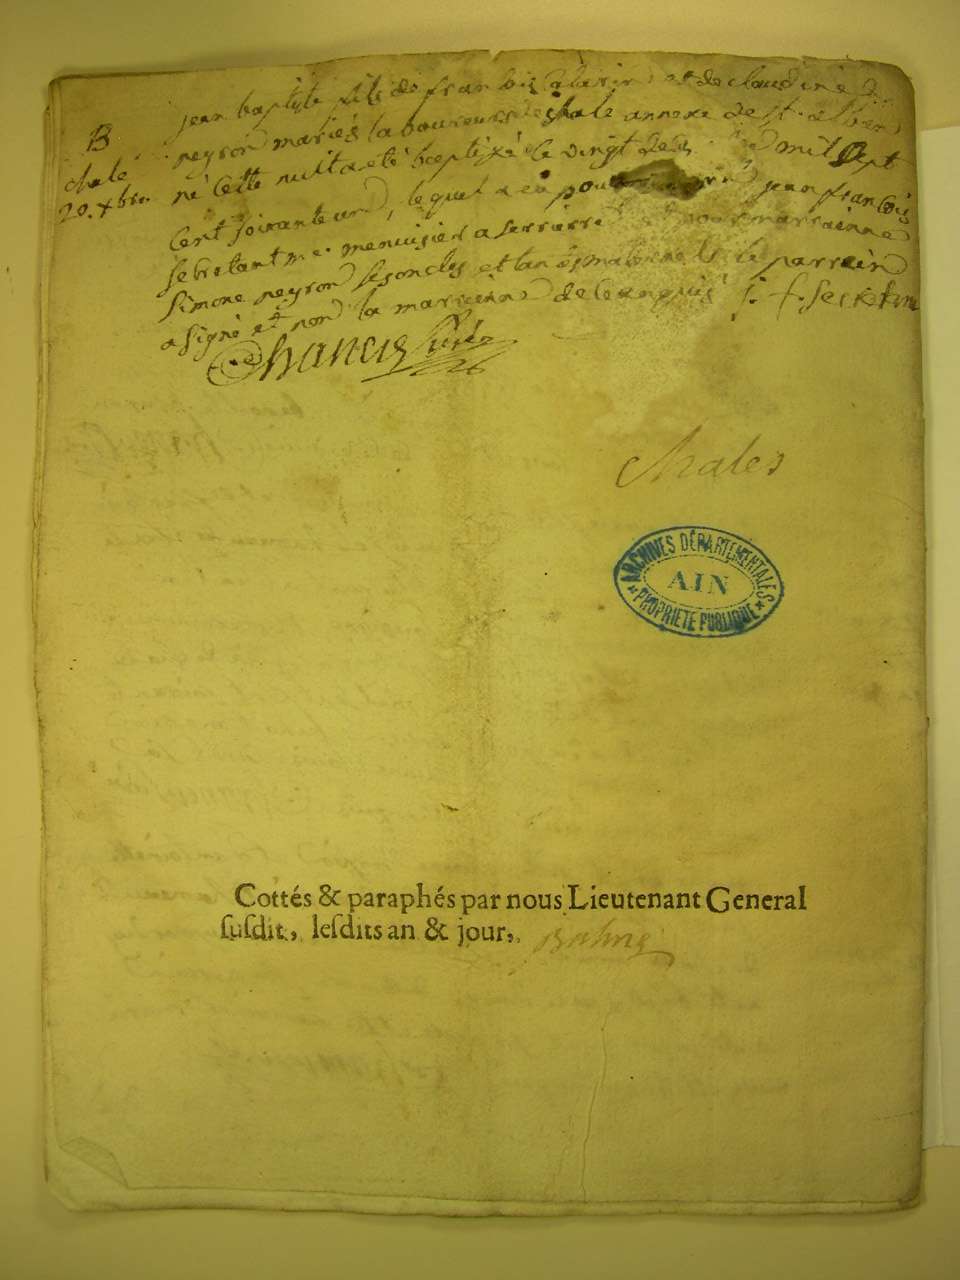 B
chale
20. Xbre
jean baptiste fils de françois et de claudine
neyron mariés laboureurs de chale annexe de st. alban
né cette nuit a eté baptizé le vingt mil sept
cent soixante un, le quel a eu pour jean françois
menuisier a et pour marrainne
Simone neyron ses oncles et tan maternels le parrein
a signé et non la marreinne de ce enquis j. f.
francis curé
Chales
ARCHIVES DÉPARTEMENTALES
AIN
PROPRIETE PUBLIQUE
Cottés & paraphés par nous Lieutenant General
ſuſdit, leſdits an & jour,